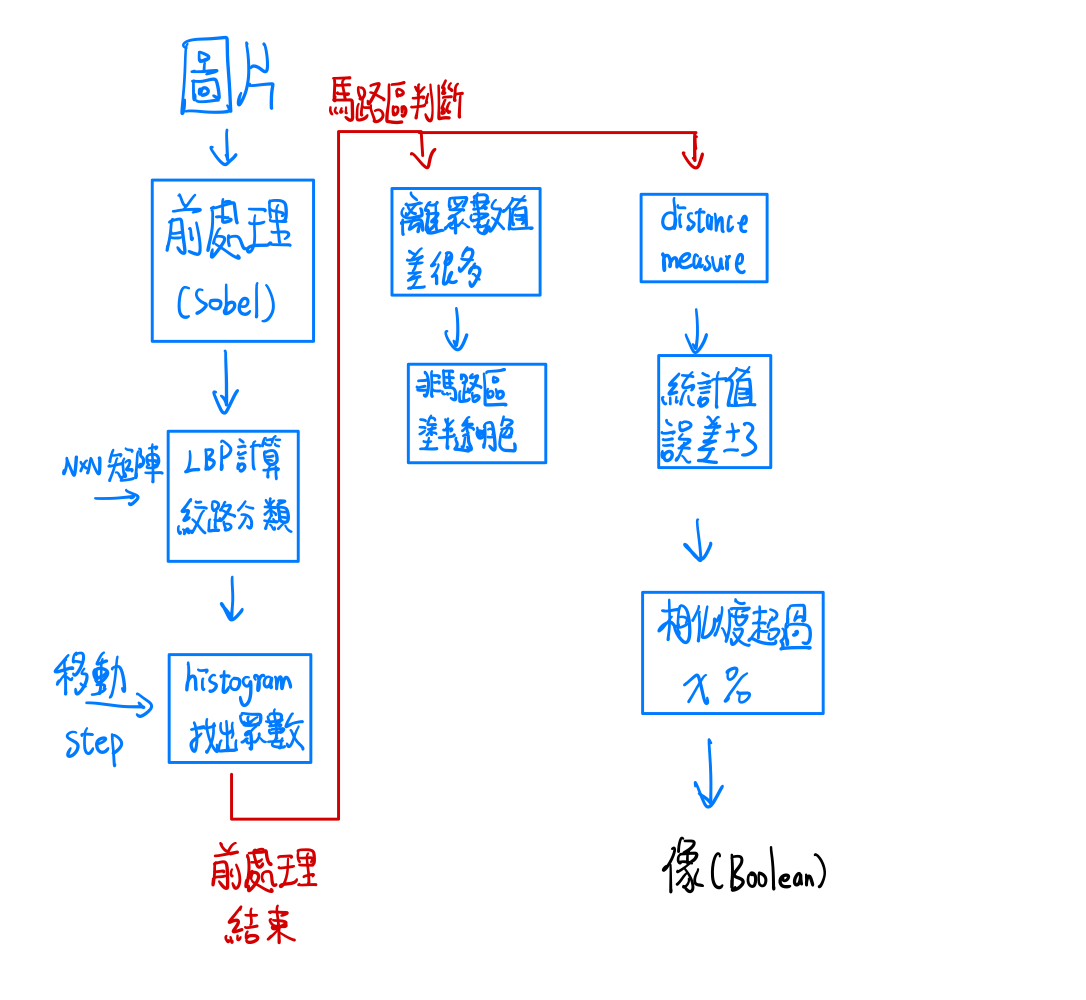 圖片
前處理
(Sobel)
N×N 矩陣
LBP計算
紋路分類
移動
step
histogram
找出眾數
前處理
結束
馬路區判斷
離眾數值
差很多
非馬路區
塗半透明色
distance
measure
統計值
誤差±3
相似度超過
x %
像(Boolean)